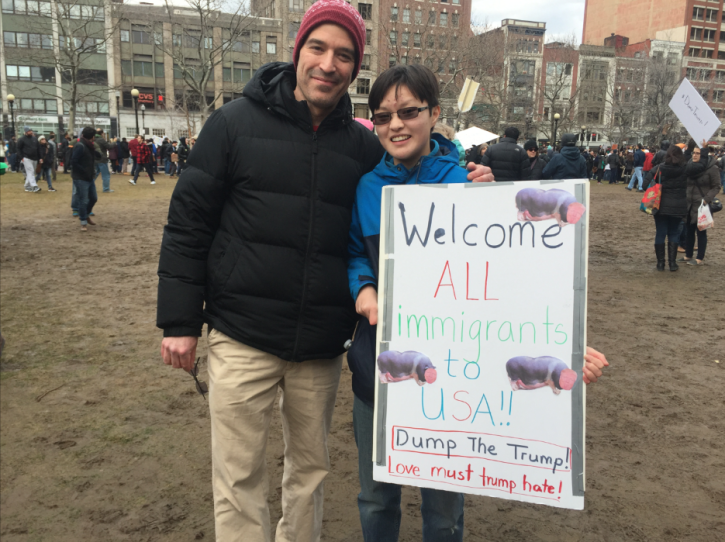 Welcome
ALL
immigrants
to
USA!!
Dump The Trump!
Love must trump hate!
CVS